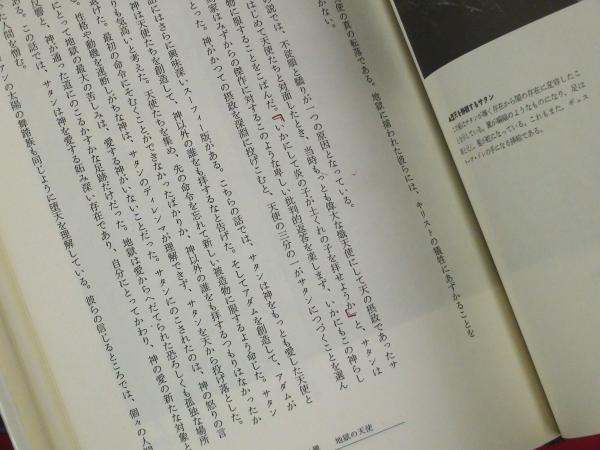 ▲悪天を俯瞰するサタン
この絵はサタンが輝く存在から闇の存在に変容したこ
とを示している。翼が蝙蝠のようなものになり、足は
蛇になっている。これもまた、ギュス
ターヴ・ドレの手になる挿絵である。
使の真の転落である。地獄に捕われた彼らには、キリストの犠牲にあずかることを
きない。
の説では、不従順と驕りが一つの原因となっている。
はじめて天使たちと対面したとき、当時もっとも偉大な熾天使にして天の摂政であったサ
ムに服することをこばんだ。『いかにして炎の子が土くれの子を拝せようか』と、サタンは
家はみずからの傑作に対するこのような卑しい批判的返答を楽しまず、いかにもこの神らし
とった。神がかつての摂政を深淵に投げこむと、天使の三分の一がサタンにつづくことを選ん
話にはさらに興味深いスーフィー版がある。こちらの話では、サタンは神をもっとも愛した天使と
神は天使たちを創造して、神以外の誰をも拝するなと告げた。そしてアダムを創造して、アダムが
りも気高いと考えた。天使たちを集め、先の命令を忘れて新しい被造物に服するよう命じた。サタン
た。最初の命令にそむくことができなかったばかりか、神以外の誰をも拝するつもりはなかったか
性格や動機を迷惑しがちな神は、サタンのディレンマが理解できず、サタンを天から投げ落とした。
とって地獄の最大の苦しみは、愛する神がいないことだった。サタンにのこされたのは、神の怒りの言
反響と、神が通った道にのこるかすかな足跡だけだった。地獄は愛からへだてられた恐ろしくも孤独な場所
ある。この話では、サタンは神を愛する妬み深い存在であり、自分にとってかわり、神の愛の新たな対象と
た人間を憎む。
インの太陽の舞踏族も同じように堕天を理解している。彼らの信じるところでは、個々の人間
地獄の天使